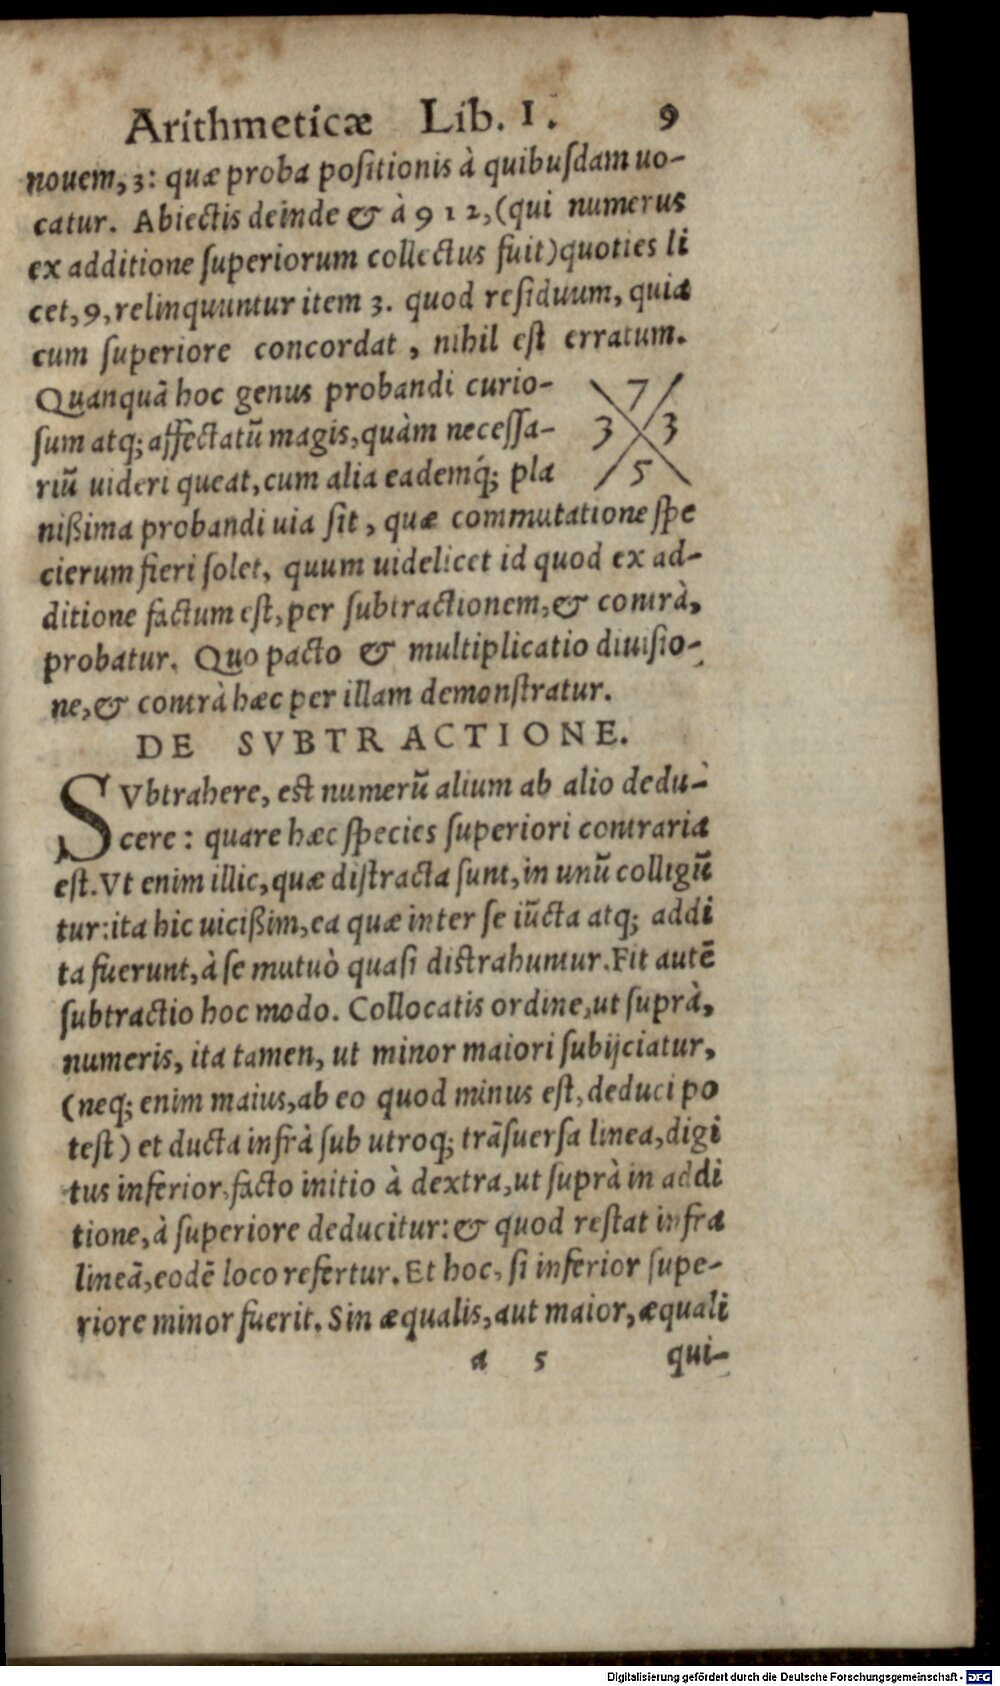 Arithmeticæ Lib. I. 9
nouem, 3: quæ proba positionis à quibusdam uo-
catur. Abiectis deinde & à 912, (qui numerus
ex additione superiorum collectus fuit) quoties li
cet, 9, relinquuntur item 3. quod residuum, quia
cum superiore concordat, nihil est erratum.
Quanquā hoc genus probandi curio-
sum atq; affectatū magis, quàm necessa-
riū uideri queat, cum alia eademq́; pla
nißima probandi uia sit, quæ commutatione spe
cierum fieri solet, quum uidelicet id quod ex ad-
ditione factum est, per subtractionem, & contrà,
probatur. Quo pacto & multiplicatio diuisio-
ne, & contrà hæc per illam demonstratur.
7
3 3
5
DE SVBTRACTIONE.
SVbtrahere, est numerū alium ab alio dedu-
cere: quare hæc species superiori contraria
est. Vt enim illic, quæ distracta sunt, in unū colligū
tur: ita hic uicißim, ea quæ inter se iūcta atq; addi
ta fuerunt, à se mutuò quasi distrahuntur. Fit autē
subtractio hoc modo. Collocatis ordine, ut suprà,
numeris, ita tamen, ut minor maiori subijciatur,
(neq; enim maius, ab eo quod minus est, deduci po
test) et ducta infrà sub utroq; trāsuersa linea, digi
tus inferior, facto initio à dextra, ut suprà in addi
tione, à superiore deducitur: & quod restat infra
lineā, eodē loco refertur. Et hoc, si inferior supe-
riore minor fuerit. Sin æqualis, aut maior, æquali
a 5 qui-
Digitalisierung gefördert durch die Deutsche Forschungsgemeinschaft - DFG